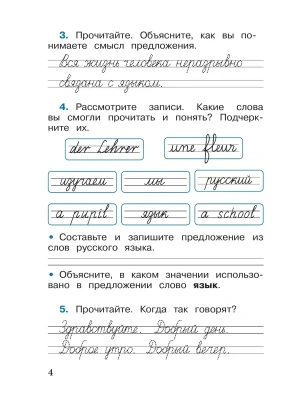 3. Прочитайте. Объясните, как вы по-
нимаете смысл предложения.
Вся жизнь человека неразрывно
связана с языком.
4. Рассмотрите записи. Какие слова
вы смогли прочитать и понять? Подчерк-
ните их.
der Lehrer une fleur
изучаем мы русский
a pupil язык a school
• Составьте и запишите предложение из
слов русского языка.
• Объясните, в каком значении использо-
вано в предложении слово язык.
5. Прочитайте. Когда так говорят?
Здравствуйте. Добрый день.
Доброе утро. Добрый вечер.
4